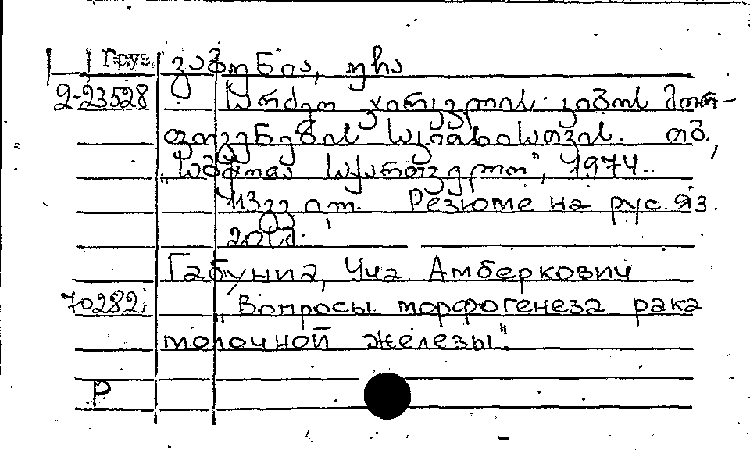 Груз. გაბუნია, უჩა
2-23528 სარძევე ჯირკვლის კიბოს მორ-
ფოგენეზის საკითხისათვის. თბ.,
„საბჭოთა საქართველო", 1974.
113 გვ. ილ. Резюме на рус. яз.
Габуния, Уча Амберкович
70282 "Вопросы морфогенеза рака
молочной железы".
Р